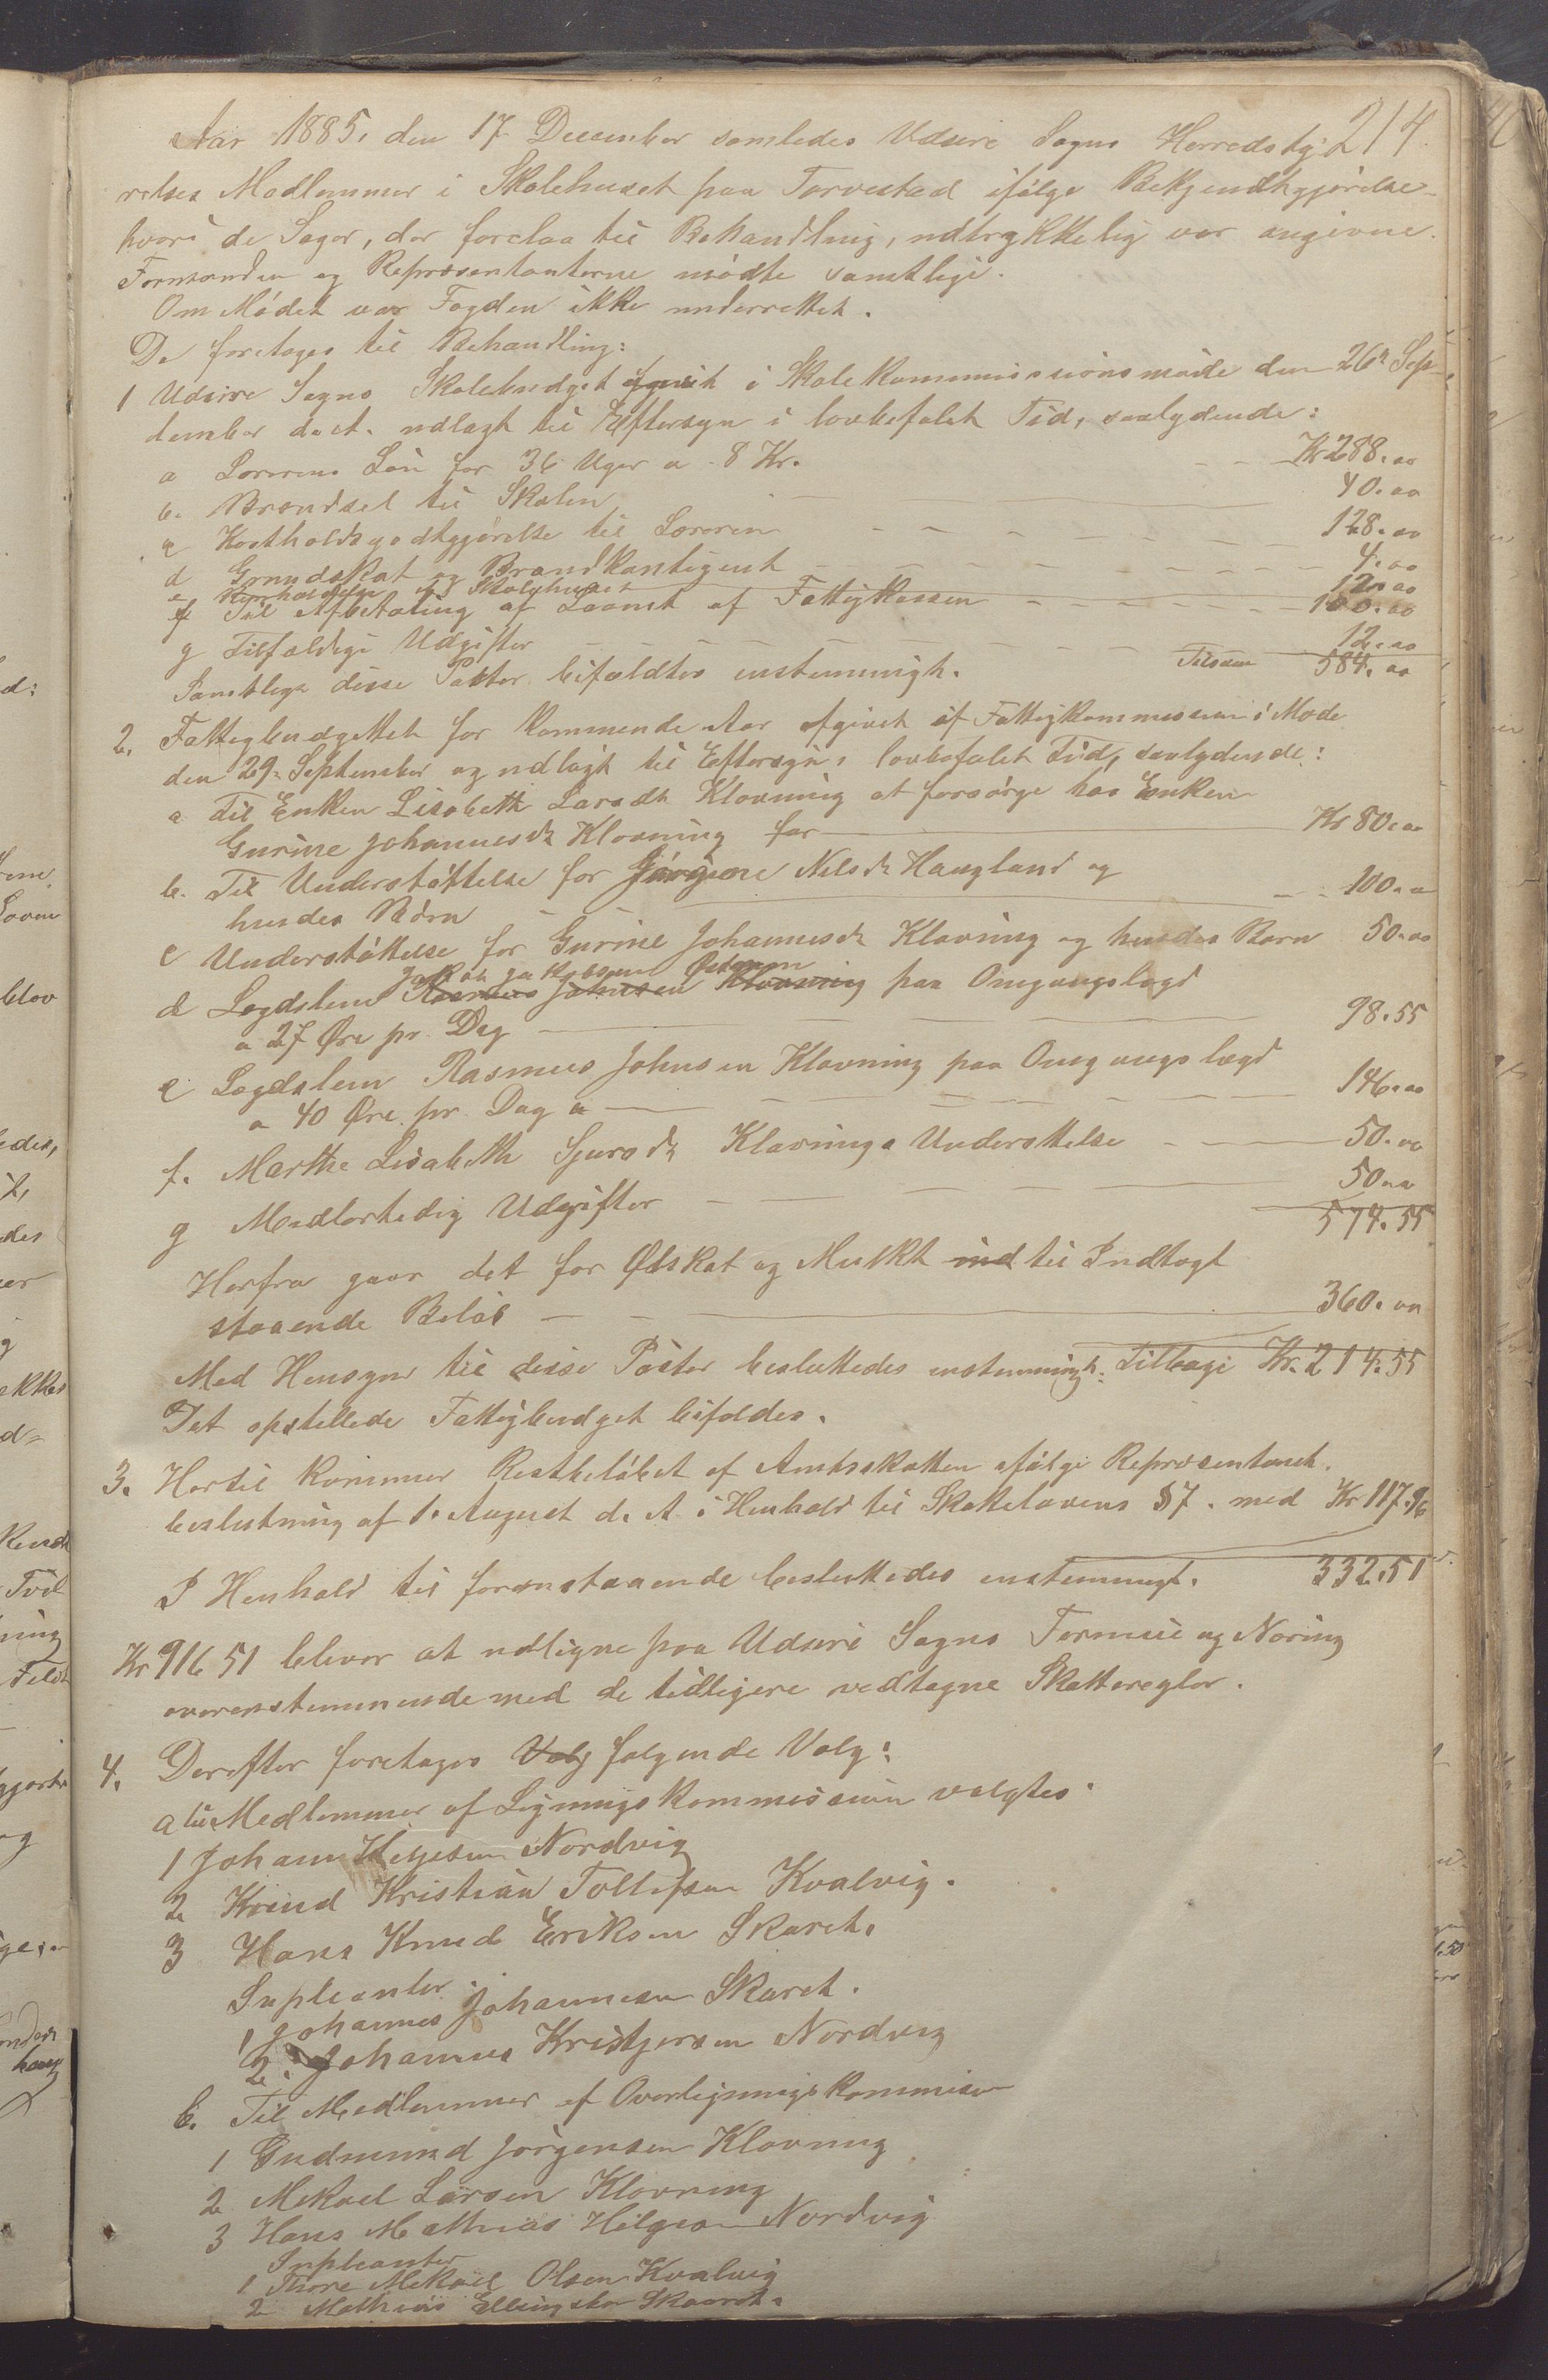 214.
Aar 1885, den 17 December samledes Udsire Sogns Herredsty-
relses Medlemmer i Skolehuset paa Torvestad ifølge Bekjendtgjørelse
hvori de Sager, der forelaa til Behandling, udtrykkelig var angivne.
Formanden og Repræsentanterne mødte samtlige.
Om Mødet var Fogden ikke underrettet.
De foretoges til Behandling:
1 Udsire Sogns Skolebudget i Skolekommissionsmøde den 26de Sep-
tember d. A. udlagt til Eftersyn i lovbefalet Tid, saalydende:
a Lærerens Løn for 36 Uger a 8 Kr. Kr 288.00
b. Brændsel til Skolen 40.00
c Kostholdsgodtgjørelse til Læreren 128.00
d Grundskat og Brandkontigent 4.00
e Renholdelse af Skolehuset 12.00
f Til Afbetaling af Laanet af Fattigkassen 100.00
g Tilfældige Udgifter 12.00
Samtlige disse Poster bifaldtes enstemmigt. Tilsam 584.00
2. Fattigbudgettet for kommende Aar afgivet af Fattigkommissionen i Møde
den 29. September og udlagt til Eftersyn i lovbefalet Tid, saalydende:
a Til Enken Lisabeth Larsdt Klovning at forsørge hos Enken
Gurine Johannesdt Klovning for Kr 80.00
b. Til Understøttelse for Jørgine Nilsdt Haugland og
hendes Børn 100.00
c Understøttelse for Gurine Johannesdt Klovning og hendes Barn 50.00
Jakob Jakobsen
d Lægdslem Rasmus Johnsen Klovning paa Omgangslægd
a 27 Øre pr. Dag 98.55
e Lægdslem Rasmus Johnsen Klovning paa Omgangslægd
a 40 Øre pr. Dag 146.00
f. Marthe Lisabeth Sjursdt Klovnings Understtelse 50.00
g Medlertedig Udgifter 50.00
574.55
Herfra gaar det for Ølskat og Mulkt ind til Indtægt
staaende Beløb 360.00
Med Hensyn til disse Poster besluttedes enstemmigt: Tilbage Kr. 214.55
Det opstillede Fattigbudget bifaldes.
3. Hertil kommer Restbeløbet af Amtsskatten ifølge Repræsentant-
beslutning af 1. August d. A. i Henhold til Skattelovens § 7. med Kr 117.96
I Henhold til foranstaaende besluttedes enstemmigt. 332.51
Kr 916 51 bliver at udligne paa Udsire Sogns Formue og Næring
overensstemmende med de tidligere vedtagne Skatteregler.
4. Derefter foretoges Valg følgende Valg:
a til Medlemmer af Ligningskommissionen valgtes
1 Johan Helgesen Nordvig
2 Knud Kristian Tollefsen Kvalvig.
3 Hans Knud Eriksen Skaret.
Supleanter
1 Johannes Johannesen Skaret.
2. Johannes Kristjersen Nordvig
b. Til Medlemmer af Overligningskommisen
1 Gudmund Jørgensen Klovning
2 Mikael Larsen Klovning
3 Hans Mathias Helgesen Nordvig
Supleanter
1 Thore Mikael Olsen Kvalvig
2 Mathias Ellingsen Skaaret.